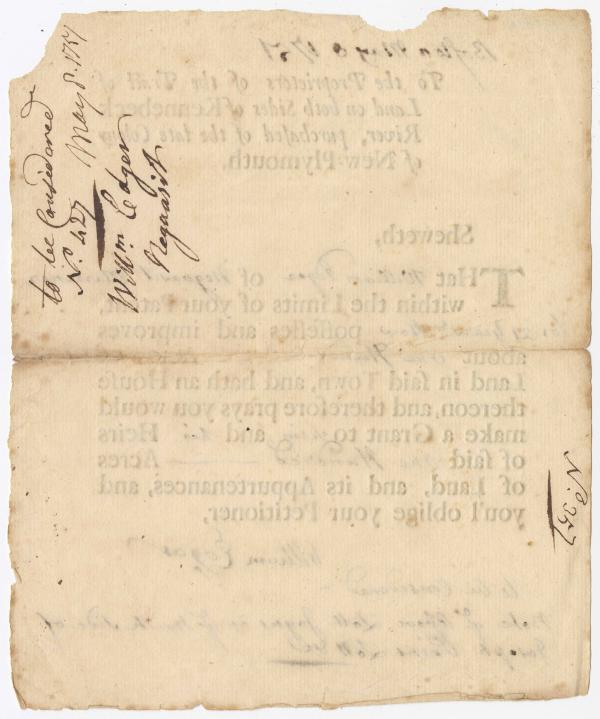 to be Considered
No. 427 May 8. 1751
Willm. Edger
Neguasit
No
Boston May 8 1751
To the Proprietors of the Tract of
Land on both Sides of Kennebeck
River, purchased of the late Colony
of New-Plymouth.
Sheweth,
THat William Edger of Neguasit
within the Limits of your Patent,
possesses and improves
about One Hundred
Land in said Town, and hath an House
thereon, and therefore prays you would
make a Grant to him and his Heirs
of said One Hundred Acres
of Land, and its Appurtenances, and
you'l oblige your Petitioner,
William Edger
to be Considered